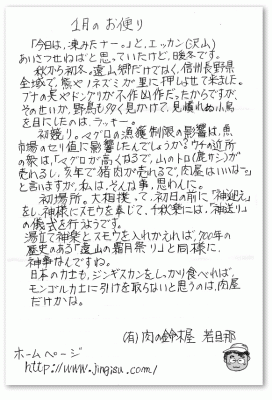 1月のお便り
「今日は、凍みたナー。」と、エッカン(沢山)
あいさつせねばと思っていたけど、暖冬です。
秋から初冬。遠山郷だけではなく、信州長野県
全域で、熊やノネズミが里に押し出て来ました。
ブナの実やドングリが不作凶作だったからですが、
そのせいか、野鳥も多く見かけて、見慣れぬ小鳥
を目にしたのは、ラッキー。
初競り。マグロの漁獲制限の影響は、魚
市場のセリ値に影響したんでしょうか?ウチの近所
の衆は、「マグロが高くなるで、山のトロ(鹿サシ)が
売れるし、亥年で猪肉が売れるで、肉屋はいいなー」
と言いますが、私は、そんな事、思わんに。
初場所。大相撲って、初日の前に「神迎え」
をし、神様にスモウを奉じて、千秋楽には、「神送り」
の儀式を行うようです。
湯立て神楽とスモウを入れかえれば、800年の
歴史のある「遠山の霜月祭り」と同様に、
神事なんですね。
日本の力士も、ジンギスカンをしっかり食べれば、
モンゴル力士に引けを取らないと思うのは、肉屋
だけかな。
(有)肉の鈴木屋 若旦那
ホームページ
http://www.jingisu.com/